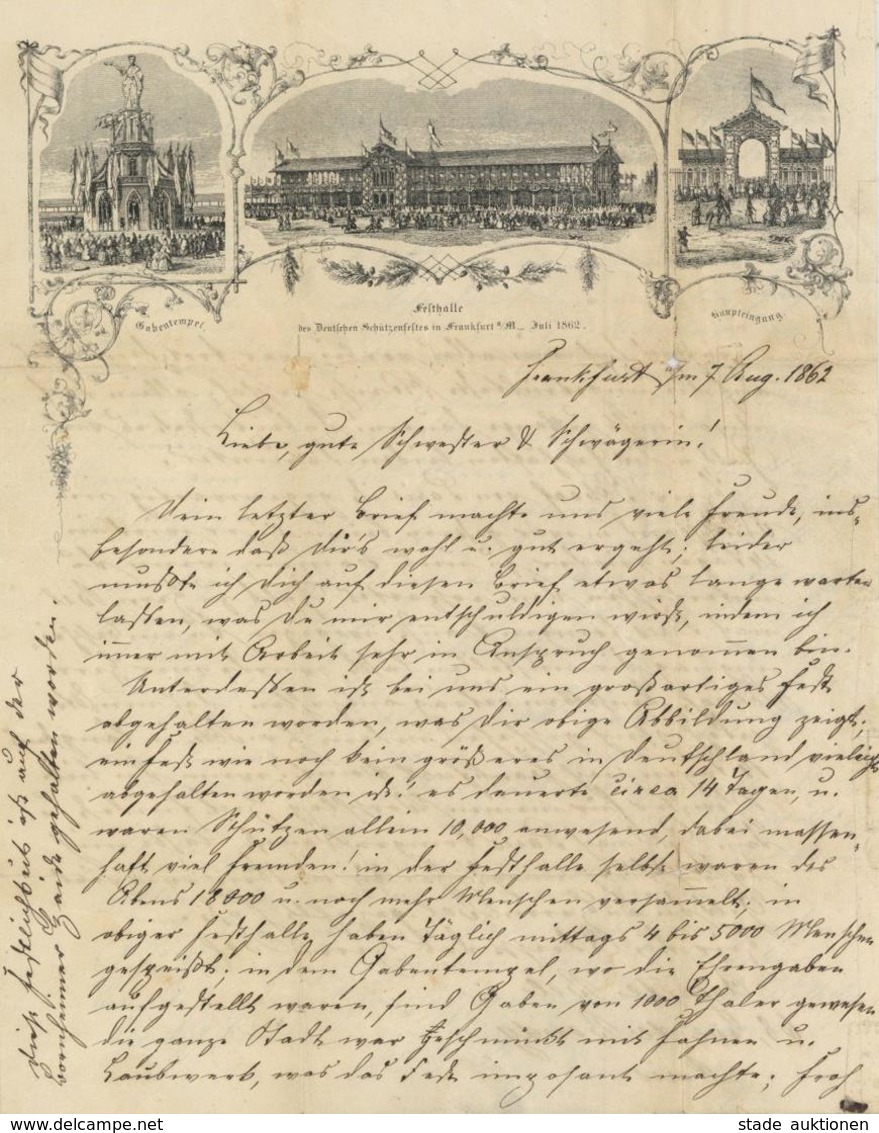 Gabentempel.
Festhalle
des Deutschen Schützenfestes in Frankfurt a/M. Juli 1862.
Haupteingang.
Frankfurt a/m 7 Aug. 1862
Liebe, gute Schwester & Schwägerin!
Dein letzter Brief machte uns viele Freude, ins-
besondere daß Dir's wohl u. gut ergeht; leider
mußte ich Dich auf diesen Brief etwas lange warten
lassen, was Du mir entschuldigen wirst, indem ich
immer mit Arbeit sehr in Anspruch genommen bin.
Unterdessen ist bei uns ein großartiges Fest
abgehalten worden, was Dir obige Abbildung zeigt;
ein Fest wie noch kein größeres in Deutschland vieleicht
abgehalten worden ist! es dauerte circa 14 Tagen, u.
waren Schützen allein 10,000 anwesend, dabei massen-
haft viel Fremden! in der Festhalle selbst waren des
Abens 18000 u. noch mehr Menschen versammelt; in
obiger Festhalle haben Täglich mittags 4 bis 5000 Menschen
gespeißt; in dem Gabentempel, wo die Ehrengaben
aufgestellt waren, sind Gaben von 1000 Thaler gewesen
die ganze Stadt war geschmückt mit Fahnen u.
Laubwerk, was das Fest imposant machte; Froh
Diese Festlichkeit ist auf der
Bornheimer Haide gehalten worden.
stade auktionen